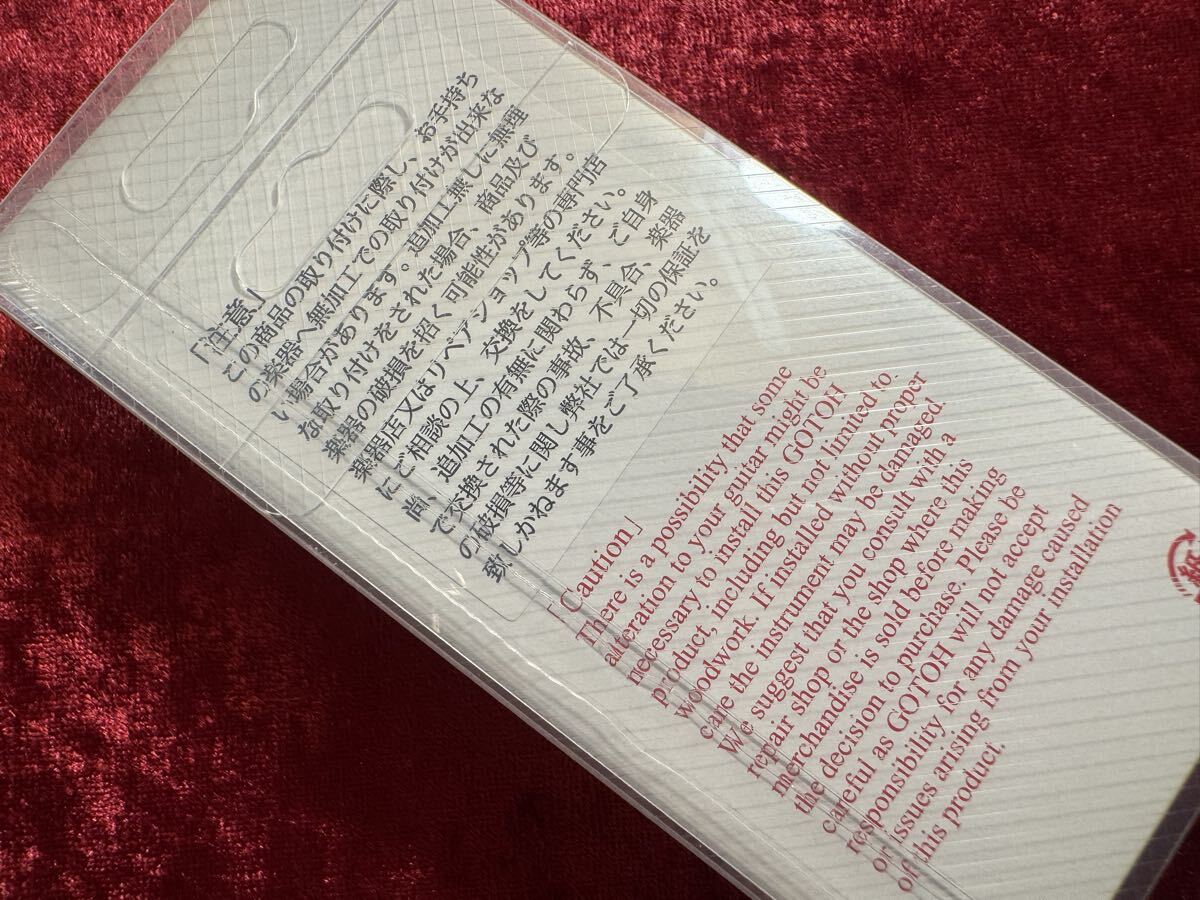 「注意」
この商品の取り付けに際し、お手持ち
の楽器へ無加工での取り付けが出来な
い場合があります。追加工無しに無理
な取り付けをされた場合、商品及び
楽器の破損を招く可能性があります。
楽器店又はリペアショップ等の専門店
にご相談の上、交換をしてください。
尚、追加工の有無に関わらず、ご自身
で交換された際の事故、不具合、楽器
の破損等に関し弊社では一切の保証を
致しかねます事をご了承ください。
「Caution」
There is a possibility that some
alteration to your guitar might be
necessary to install this GOTOH
product, including but not limited to
woodwork. If installed without proper
care the instrument may be damaged.
We suggest that you consult with a
repair shop or the shop where this
merchandise is sold before making
the decision to purchase. Please be
careful as GOTOH will not accept
responsibility for any damage caused
or issues arising from your installation
of this product.